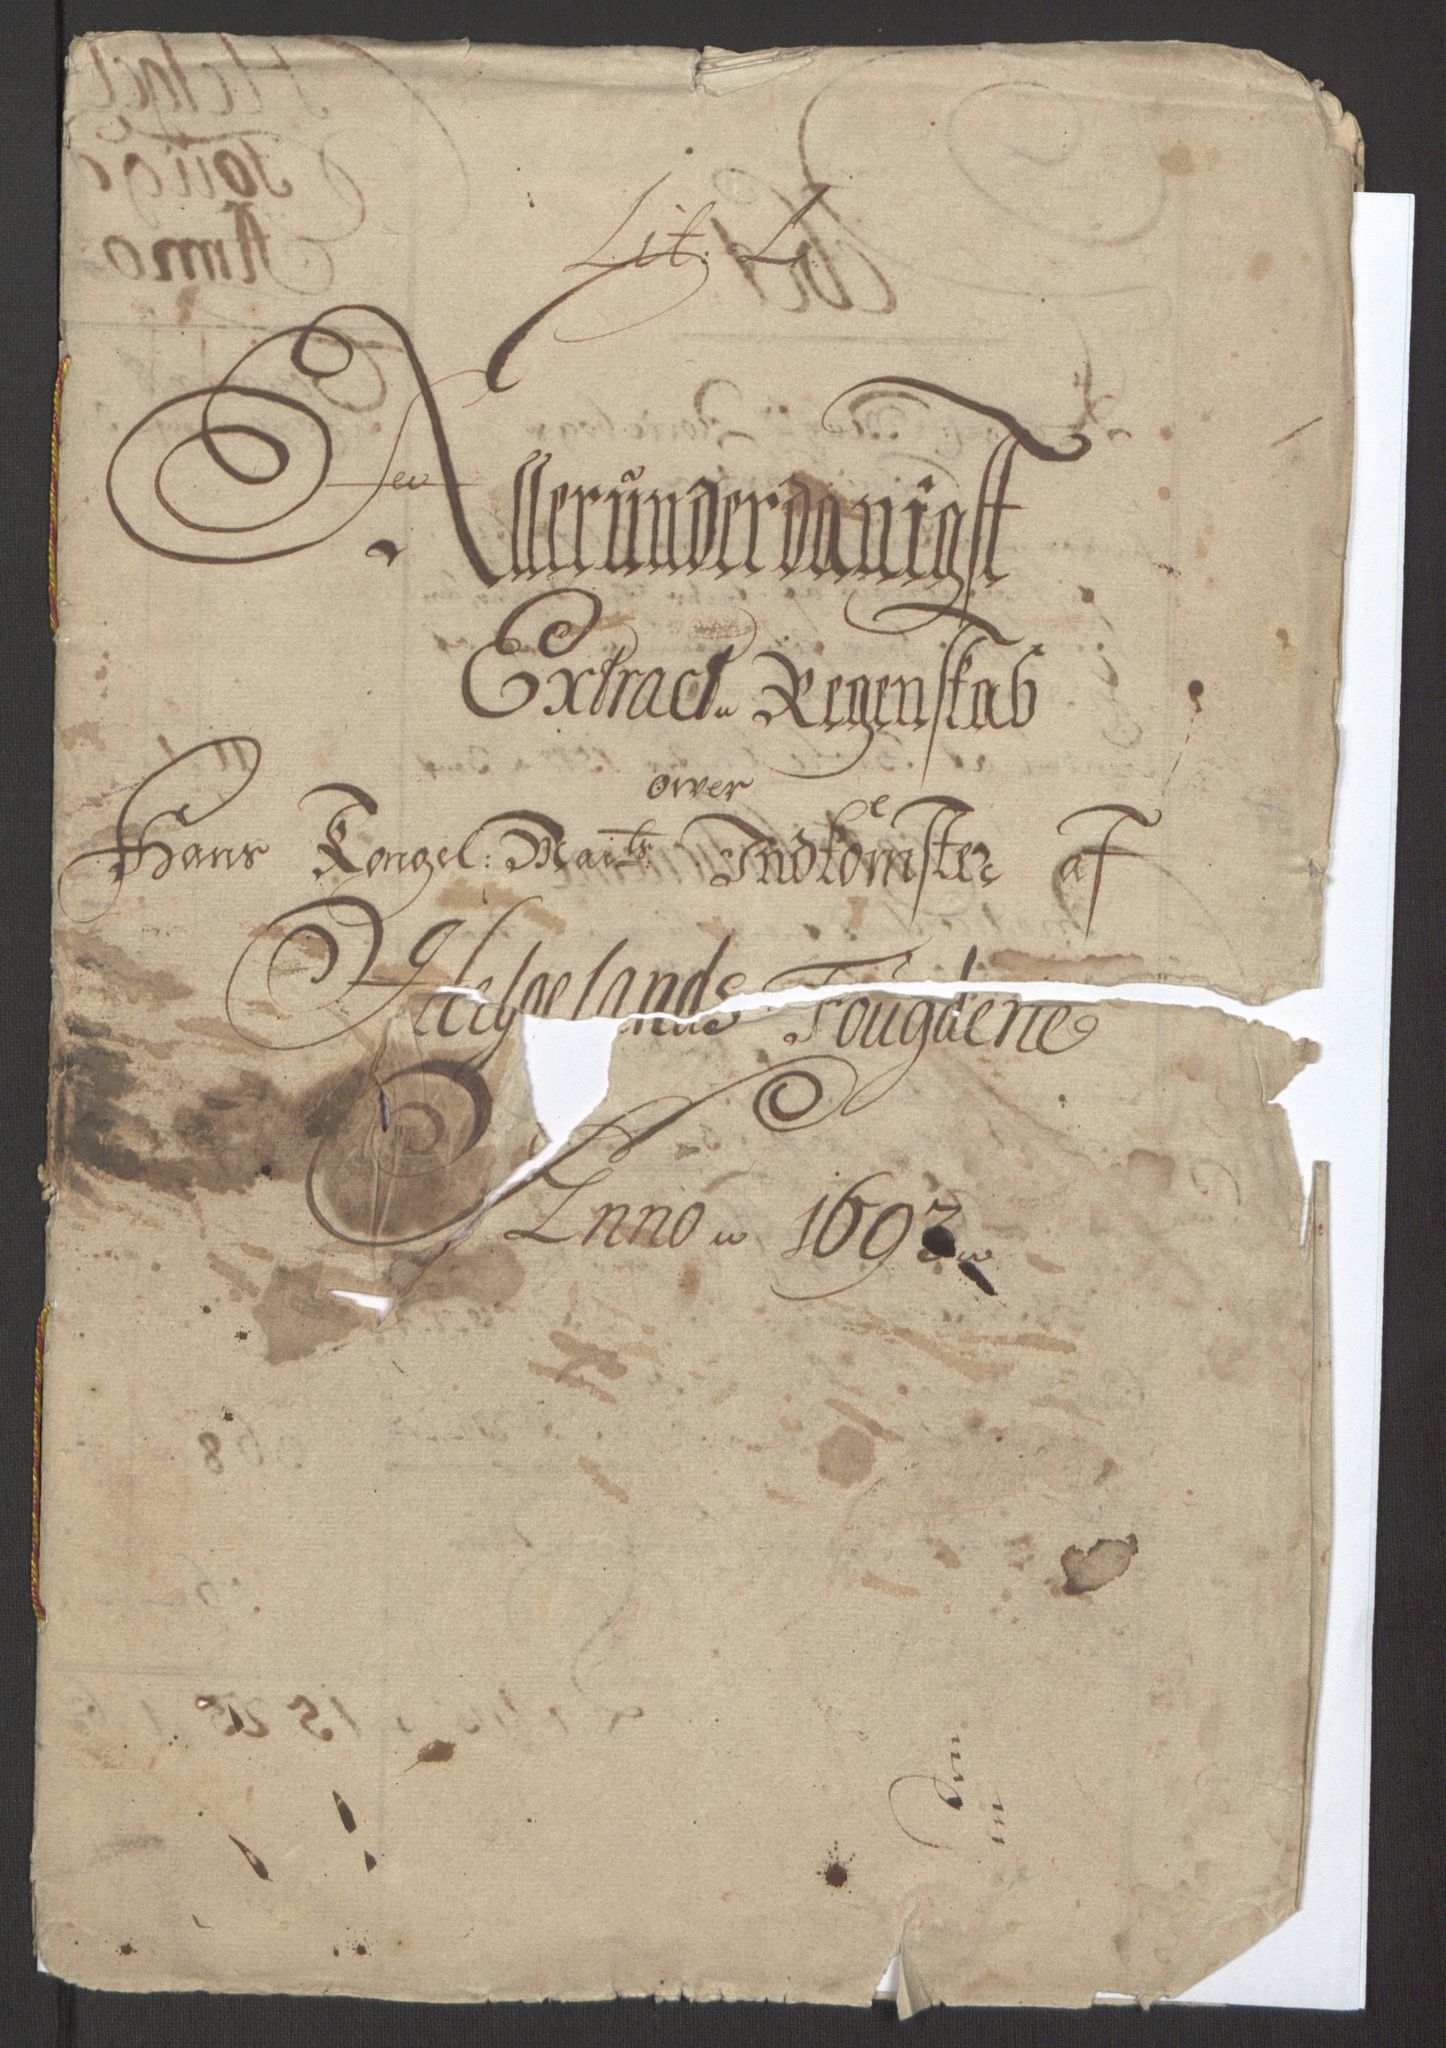 Lit. L.
Allerunderdanigst
Extract Regenskab
over
Hans Kongel: Maits: Indkomster af
Helgelands Fougderie
Anno 1692